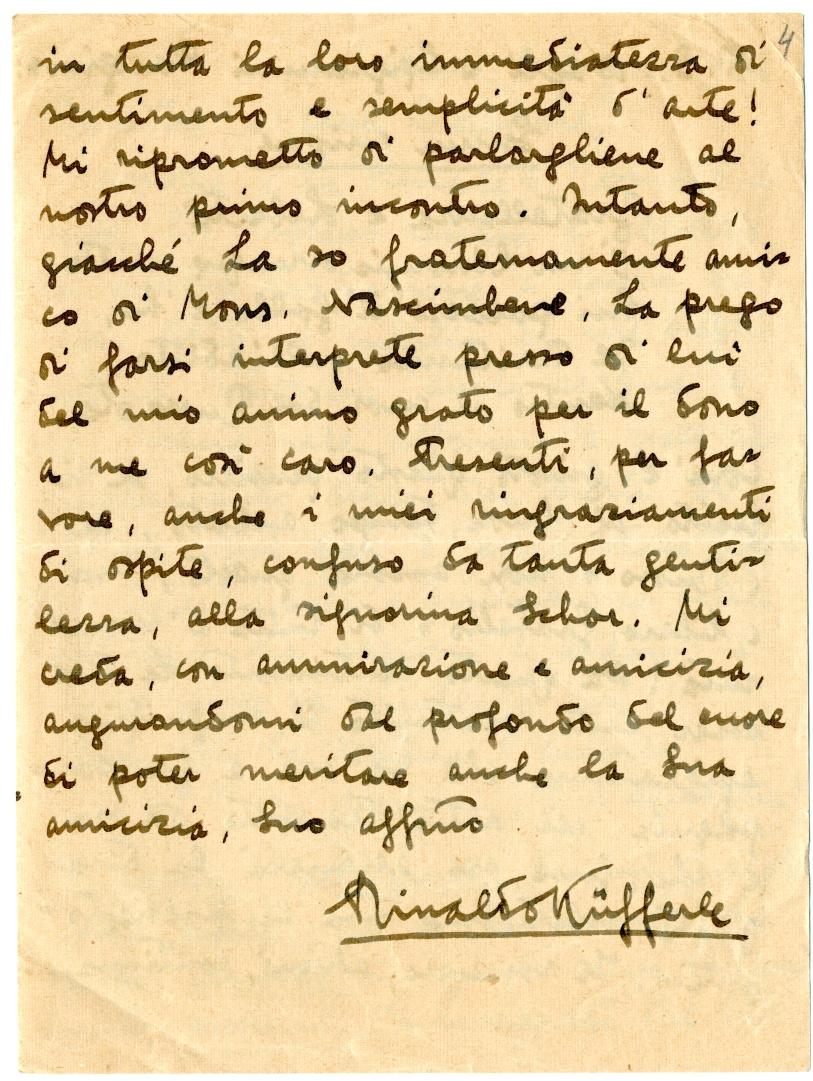 4
in tutta la loro immediatezza di
sentimento e semplicità d'arte!
Mi riprometto di parlargliene al
nostro primo incontro. Intanto,
giacché La so fraternamente ami=
co di Mons. Nascimbene, La prego
di farsi interprete presso di lui
del mio animo grato per il dono
a me così caro. Presenti, per fa=
vore, anche i miei ringraziamenti
di ospite, confuso da tanta genti=
lezza, alla signorina Schor. Mi
creda, con ammirazione e amicizia,
augurandomi dal profondo del cuore
di poter meritare anche la Sua
amicizia, Suo affmo
Rinaldo Küfferle